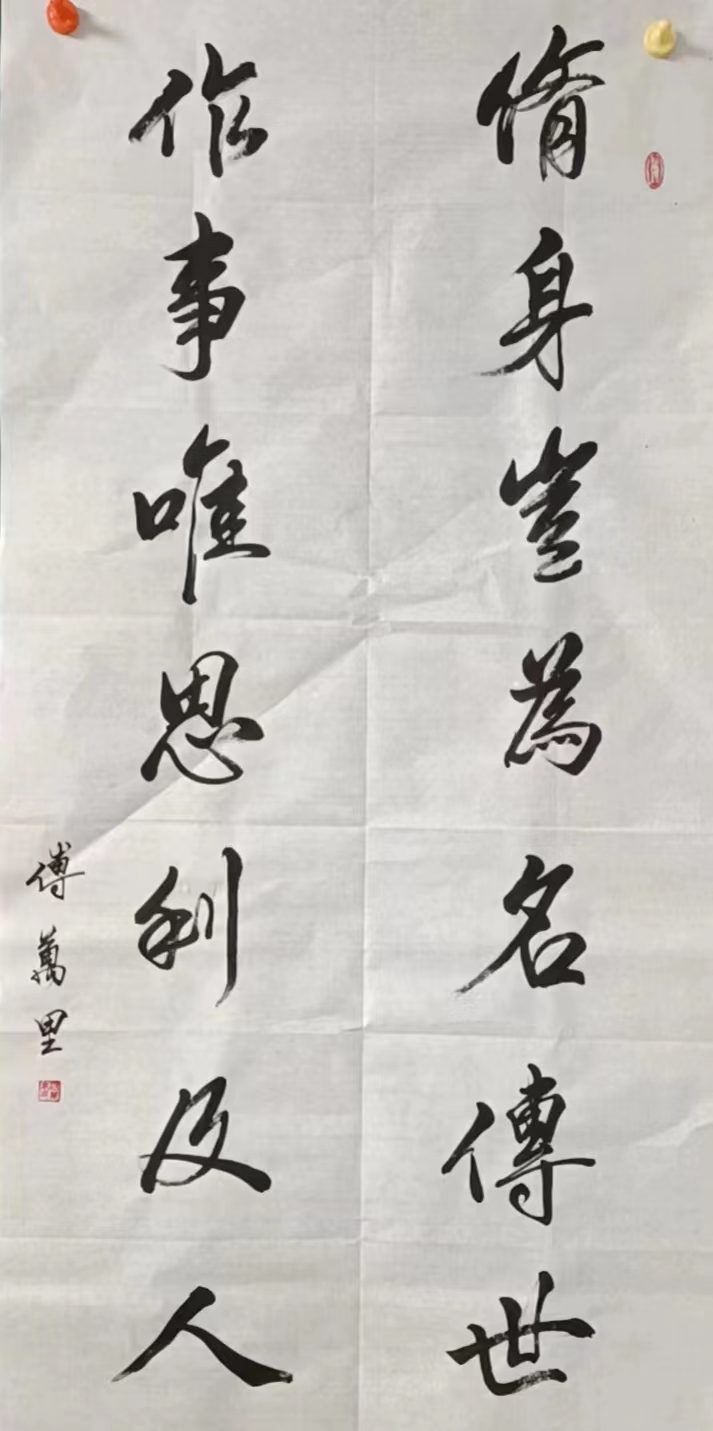 脩身豈為名傳世
作事唯思利及人
傅萬里